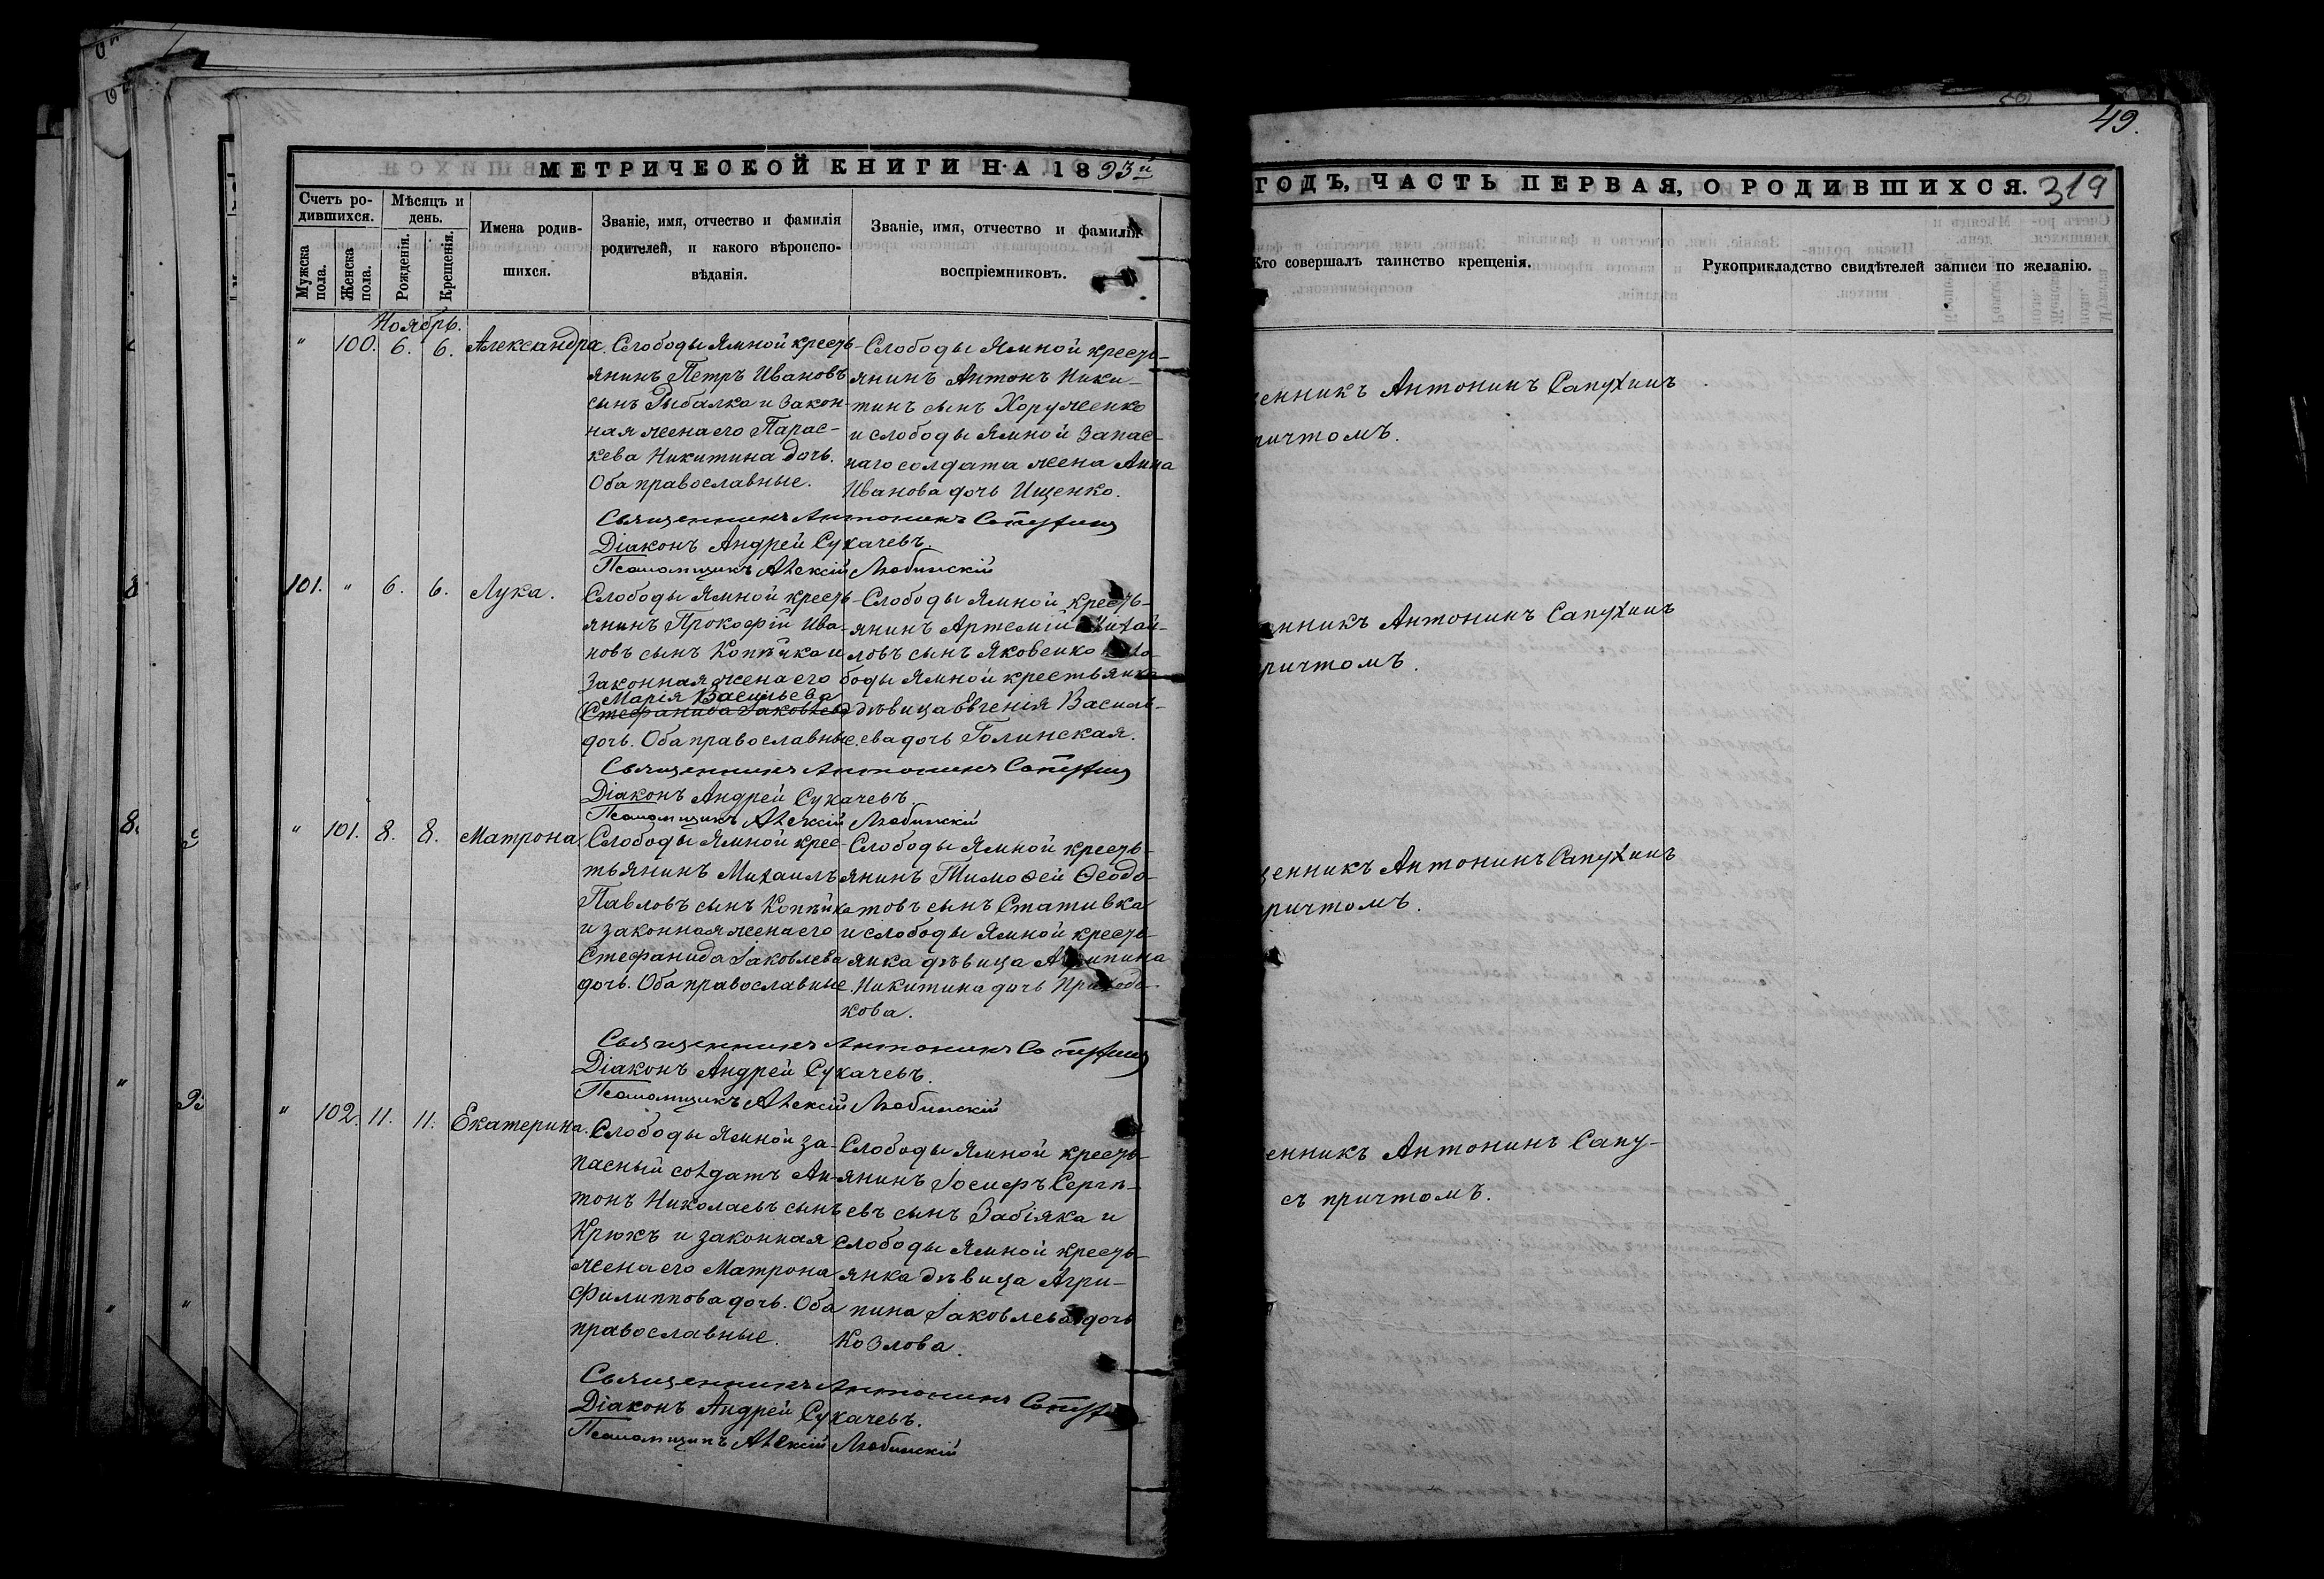 49.
МЕТРИЧЕСКОЙ КНИГИ НА 1893й
ГОДЪ, ЧАСТЬ ПЕРВАЯ, О РОДИВШИХСЯ. 319
Счетъ ро-
дившихся.
Мужска пола.
Женска пола.
Мѣсяцъ и
день.
Рожденія.
Крещенія.
Имена родив-
шихся.
Званіе, имя, отчество и фамилія
родителей, и какого вѣроиспо-
вѣданія.
Званіе, имя, отчество и фамилія
воспріемниковъ.
Кто совершалъ таинство крещенія.
Рукоприкладство свидѣтелей записи по желанію.
Ноябрь.
" 100. 6. 6. Александра.
Слободы Ямной кресть-
янинъ Петръ Ивановъ
сынъ Рыбалка и закон-
ная жена его Парас-
кева Никитина дочь.
Оба православные.
Слободы Ямной кресть-
янинъ Антонъ Ники-
тинъ сынъ Хоруженко
и слободы Ямной запас-
наго солдата жена Анна
Иванова дочь Ищенко.
енникъ Антонинъ Сапухинъ
ричтомъ.
Священникъ Антонинъ Сапухинъ
Діаконъ Андрей Сукачевъ.
Псаломщикъ Алексій Любинскій
101. " 6. 6. Лука.
Слободы Ямной кресть-
янинъ Прокофій Ива-
новъ сынъ Копѣйка и
законная жена его
Марія Васильева
Стефанида Іаковлева
дочь. Оба православные.
Слободы Ямной кресть-
янинъ Артемій Михай-
ловъ сынъ Яковенко
боды Ямной крестьянка
дѣвица Евгенія Василь-
ева дочь Голинская.
нникъ Антонинъ Сапухинъ
ричтомъ.
Священникъ Антонинъ Сапухинъ
Діаконъ Андрей Сукачевъ
Псаломщикъ Алексій Любинскій
" 101. 8. 8. Матрона.
Слободы Ямной крес-
тьянинъ Михаилъ
Павловъ сынъ Копѣйка
и законная жена его
Стефанида Іаковлева
дочь. Оба православные.
Слободы Ямной кресть-
янинъ Тимоѳей Ѳеодо-
товъ сынъ Стативка
и слободы Ямной кресть-
янка дѣвица Агрипина
Никитина дочь Приходь-
кова.
енникъ Антонинъ Сапухинъ
ричтомъ.
Священникъ Антонинъ Сапухинъ
Діаконъ Андрей Сукачевъ.
Псаломщикъ Алексій Любинскій
" 102. 11. 11. Екатерина.
Слободы Ямной за-
пасный солдатъ Ан-
тонъ Николаевъ сынъ
Крюкъ и законная
жена его Матрона
Филиппова дочь. Оба
православные.
Слободы Ямной кресть-
янинъ Іосифъ Сергѣ-
евъ сынъ Забіяка и
слободы Ямной кресть-
янка дѣвица Агри-
пина Іаковлева дочь
Козлова.
енникъ Антонинъ Сапу-
съ причтомъ.
Священникъ Антонинъ Сапух
Діаконъ Андрей Сукачевъ.
Псаломщикъ Алексій Любинскій